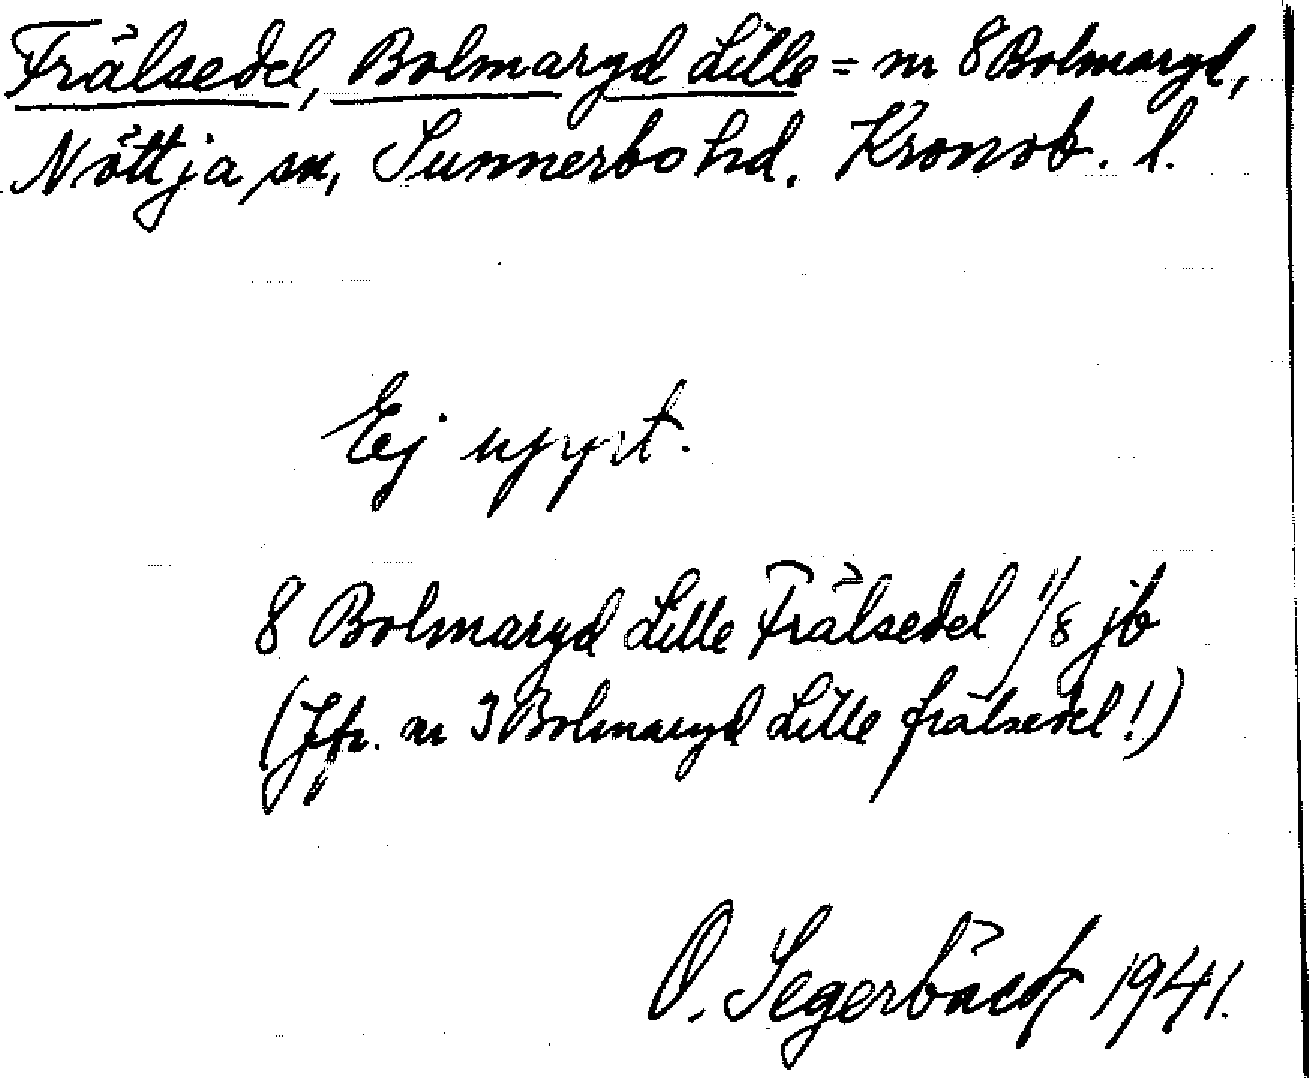 Frälsedel, Bolmaryd Lille = nr 8 Bolmaryd,
Nöttja sn, Sunnerbo hd. Kronob. l.
Ej uppt.
8 Bolmaryd Lille Frälsedel 1/8 jb
(Jfr. nr 3 Bolmaryd Lille frälsedel!)
O. Segerbäck 1941.